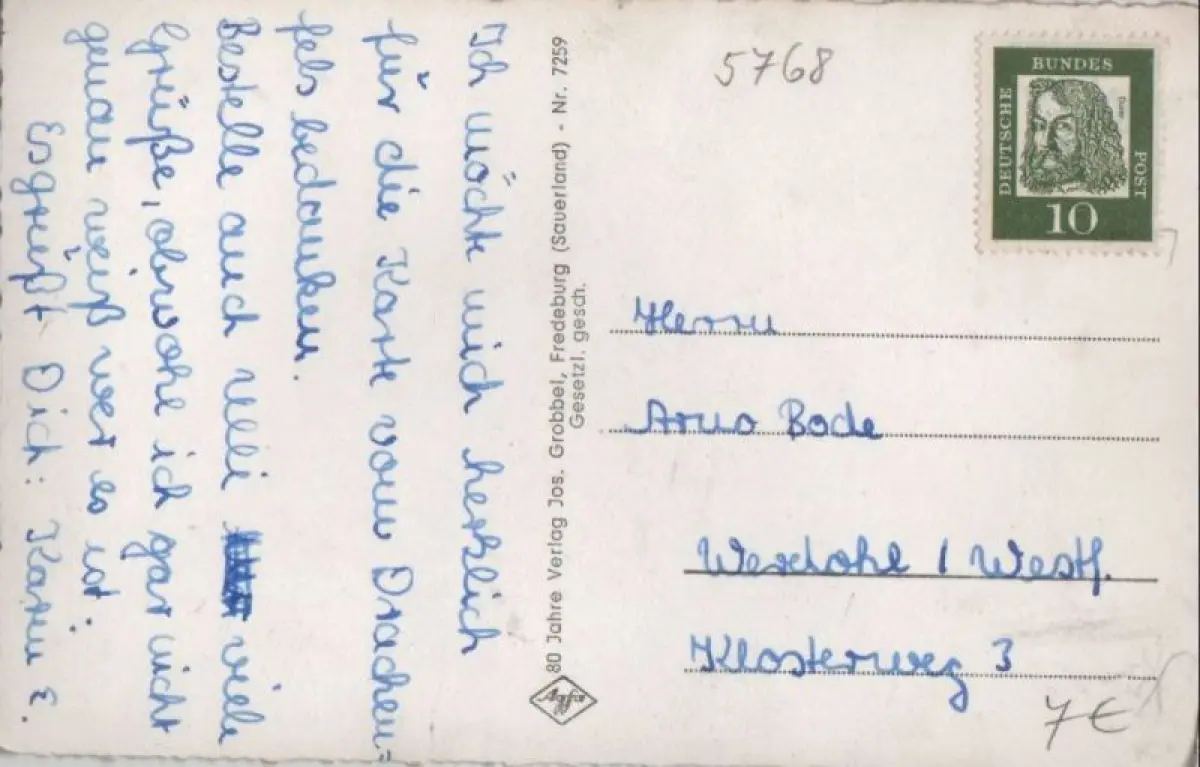 Ich möchte mich herzlich
für die Karte vom Drachen=
fels bedanken.
Bestelle auch Ulli viele
Grüße, obwohl ich gar nicht
genau weiß wer es ist.
Es grüßt Dich: Karin
80 Jahre Verlag Jos. Grobbel, Fredeburg (Sauerland) - Nr. 7259
Gesetzl. gesch.
Agfa
5768
DEUTSCHE
BUNDES
POST
Dürer
10
Herrn
Arno Bode
Werdohl / Westf.
Klosterweg 3
7€